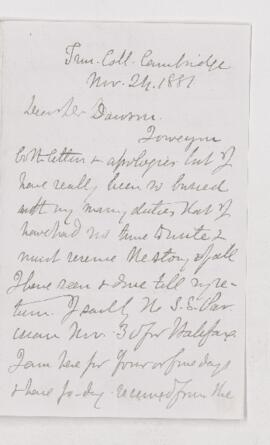 Trin. Coll. Cambridge
Nov. 24. 1881
Dear Mr Dawson
I owe you
both letters & apologies but I
have really been so busied
with my many duties that I
have had no time to write &
must reserve the story of all
I have seen & done till my re-
turn. I sail by the S.S.
Nov. 30 for Halifax.
I am here for four or five days
& have to-day received from the